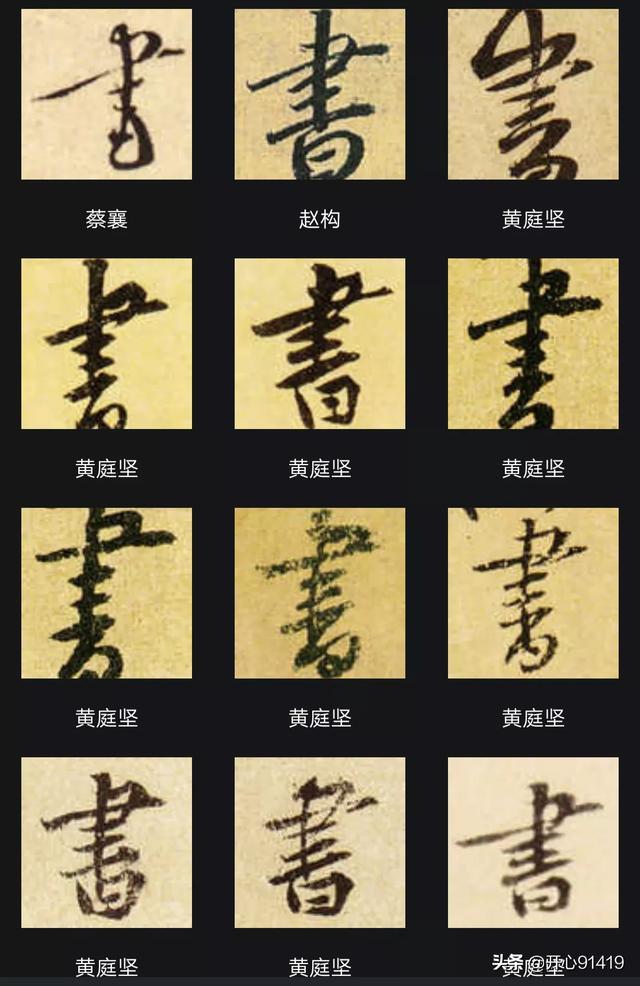 書 書 書
蔡襄 赵构 黄庭坚
書 書 書
黄庭坚 黄庭坚 黄庭坚
書 書 書
黄庭坚 黄庭坚 黄庭坚
書 書 書
黄庭坚 黄庭坚 黄庭坚
头条 @开心91419